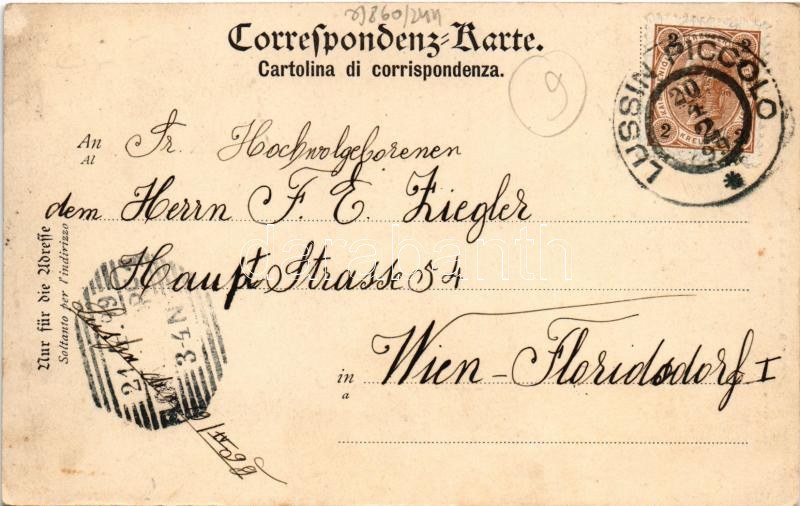 Correspondenz-Karte.
Cartolina di corrispondenza.
9
LUSSIN PICCOLO
20
2 2
An
Al
Sr. Hochwolgeborenen
dem Herrn F. E. Ziegler
Haupt Strasse 54
in
a
Wien-Floridsdorf I
Nur für die Adresse
Soltanto per l'indirizzo
21
3-4 N
darabanth